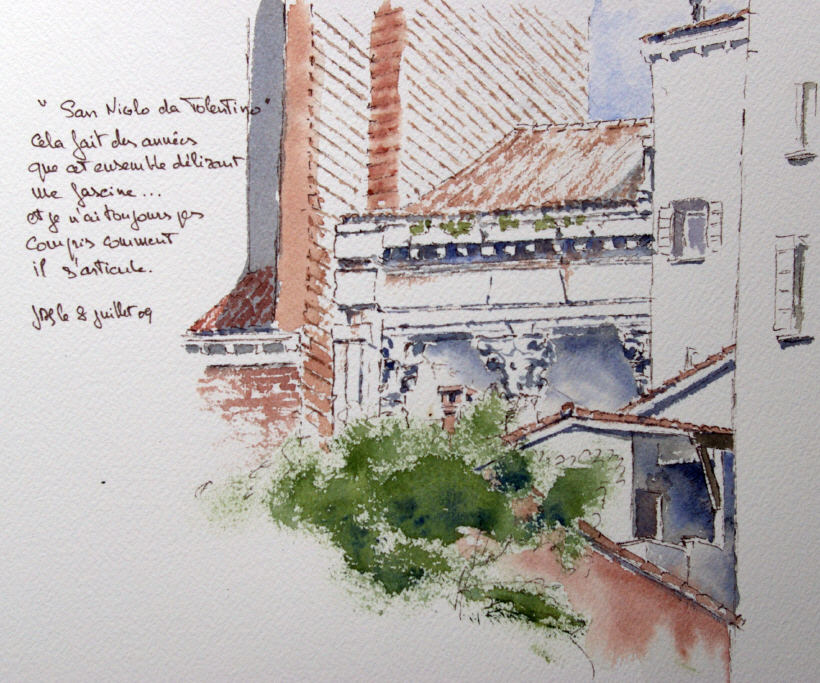 "San Nicolo da Tolentino"
Cela fait des années
que cet ensemble délirant
me fascine...
et je n'ai toujours pas
compris comment
il s'articule.
le 8 juillet 09